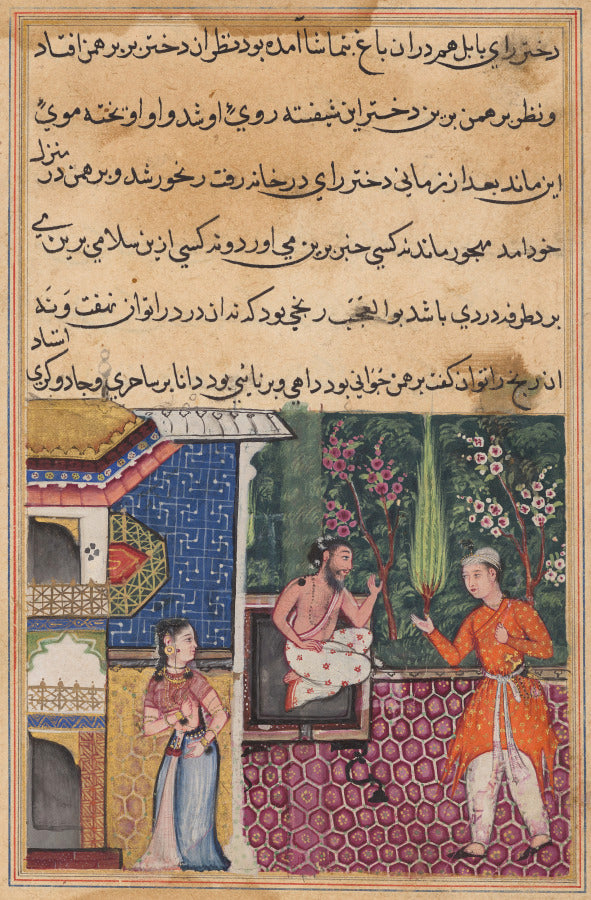 دختر رای بابل هم دران باغ بتماشا آمده بود نظران دختر بر برهمن افتاد
و نظر برهمن برین دختر این شیفته روی او شد و او اوتخته موی
این ماند بعد از زمانی دختر رای در خانه رفت رنجور شد و برهمن در منزل
خود امد مهجور ماند نه کسی خبر برین می اورد و نه کسی ازین سلامی برین می
برد طرفه دردی باشد بوالعجب رنجی بود که نه ان درد را توان نهفت و نه
ان رنج را توان کفت برهمن جوانی بود داهی و برنایی بود دانا بر ساحری و جادوکری استاد